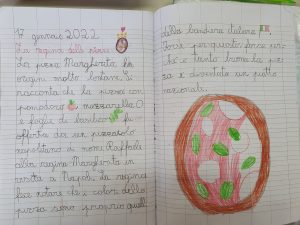 17 gennaio 2022
La regina delle pizze
La pizza Margherita ha
origini molto lontane. Si
racconta che la pizza con
pomodoro mozzarella
e foglie di basilico fu
offerta da un pizzaiolo
napoletano di nome Raffaele
alla regina Margherita in
visita a Napoli. La regina
fece notare che i colori della
pizza sono proprio quelli
della bandiera italiana
Forse per questo forse per
ché è tanto buona la piz
za è diventata un piatto
nazionale.